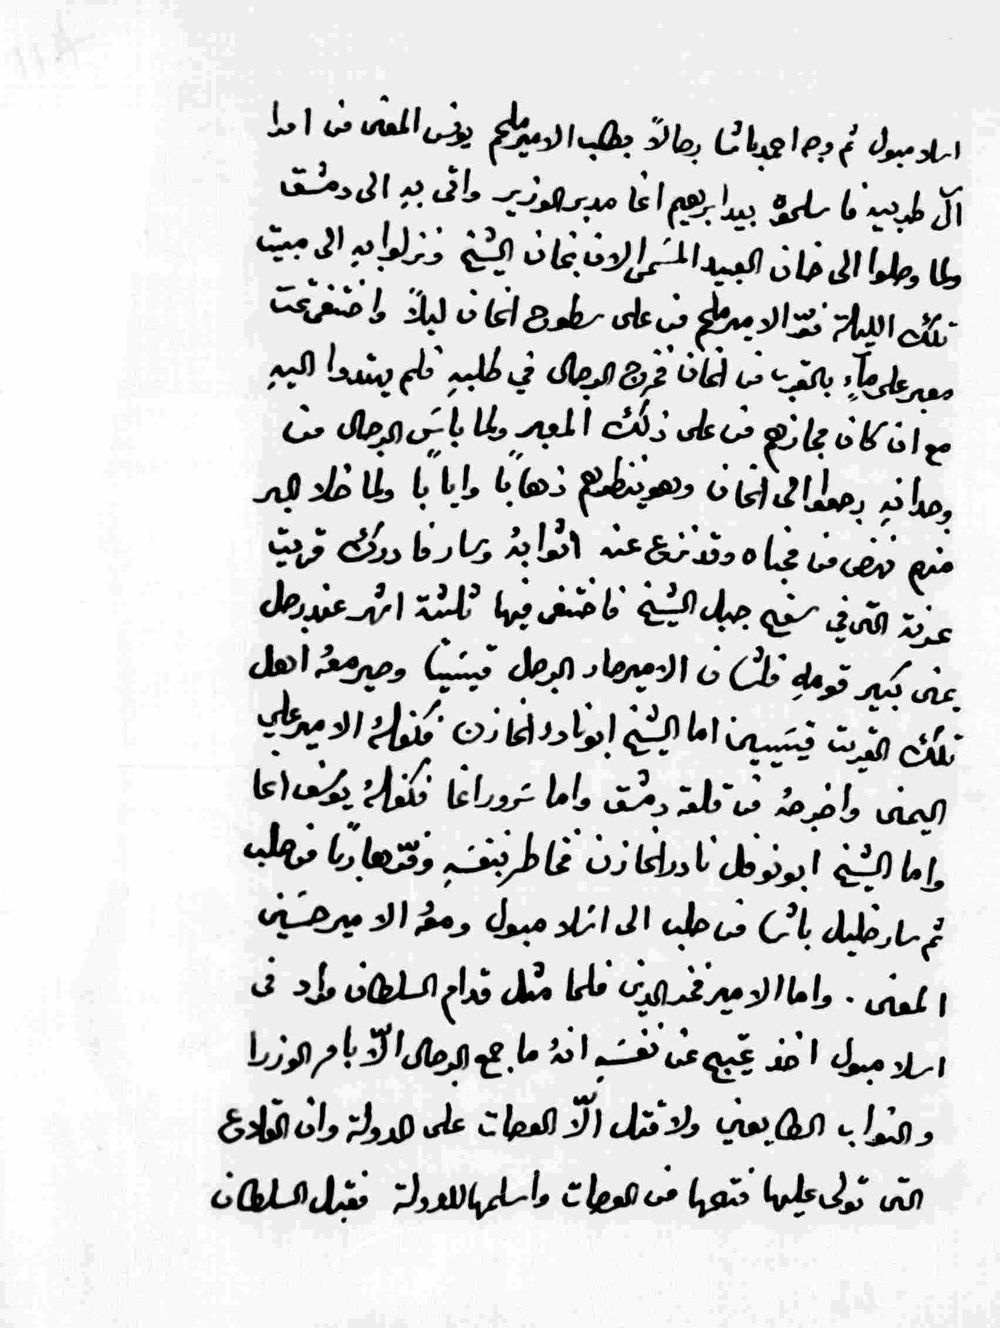 اسلامبول ثم وجه احمد باشا رجالاً بطلب الامير ملحم يونس المعنى من امرا
آل طربيه فاسلموهُ بيد ابرهيم اغا مدبر الوزير واتى بهِ الى دمشق
ولما وصلوا الى خان العبيد المسَمى الان بخان الشيخ ونزلوا بهِ الى مبيت
تلك الليلة فرّ الامير ملحم من على سطوح الخان ليلاً واختفى تحت
معبر على مآءٍ بالقرب من الخان فخرج الرجال في طلبهِ فلم يهتدوا اليهِ
مع ان كان مجازهم من على ذلك المعبر ولما يأسَ الرجال من
وجدانهِ رجعوا الى الخان وهو ينظرهم ذهاباً واياباً ولما خلا البر
منهم نهض من مخباه وقد نزع عنه اثوابهُ وسار فادرك قرية
عرنة التى في سفح جبل الشيخ فاختفى فيها ثلثة اشهر عند رجل
يمنى كبير قومهِ فلشان الامير صار الرجل قيسَياً وصير معهُ اهل
تلك القرية قيسَيين اما الشيخ ابو نادر الخازن فكفلهُ الامير علي
اليمنى واخرجهُ من قلعة دمشق واما سَرور اغا فكفلهُ يوسَف اغا
واما الشيخ ابو نوفل نادر الخازن فخاطر بنفسَهِ وفرّ هارباً من حلب
ثم سار خليل باشا من حلب الى اسَلامبول ومعهُ الامير حسَين
المعنى . واما الامير فخر الدين فلما مثل قدام السلطان مراد فى
اسلامبول اخذ يحتج عن نفسَهِ انهُ ما جمع الرجال الاّ بامر الوزرا
والنواب ولا قتل الاّ العصات على الدولة وان القلاع
التى تولى عليها فتحها من العصات واسلمها للدولة فقبل السلطان